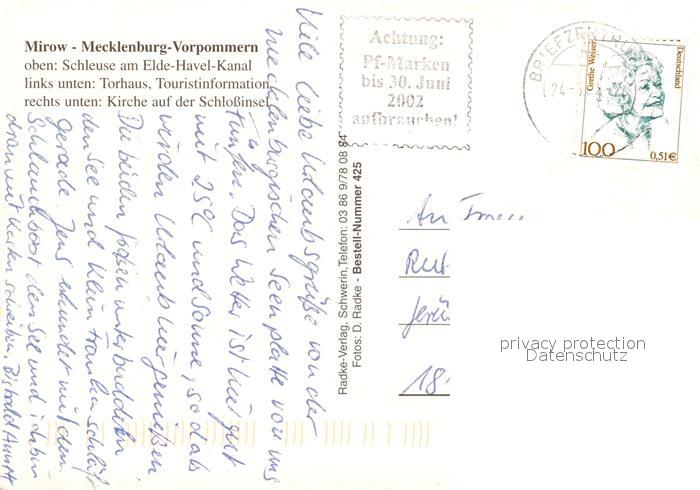 Mirow - Mecklenburg-Vorpommern
oben: Schleuse am Elde-Havel-Kanal
links unten: Torhaus, Touristinformation
rechts unten: Kirche auf der Schloßinsel
Achtung:
Pf-Marken
bis 30. Juni
2002
aufbrauchen!
BRIEFZENTRU
Grethe Weiser
Deutschland
100
0,51€
Viele liebe Urlaubsgrüße von der
Mecklenburgischen Seenplatte von uns
Fünfen. Das Wetter ist hier gut
mit 25°C und Sonne, so als
würden Urlaub hier genießen
Die beiden großen unterbuddeln
den See und klein Franken schläft
gerade. Jens erkundet mit dem
Schlauchboot den See und ich bin
dran mit Karten schreiben. Bis bald
Radke-Verlag, Schwerin,Telefon: 03 86 9/78 08 84
Fotos: D. Radke - Bestell-Nummer 425
An
privacy protection
Datenschutz
18